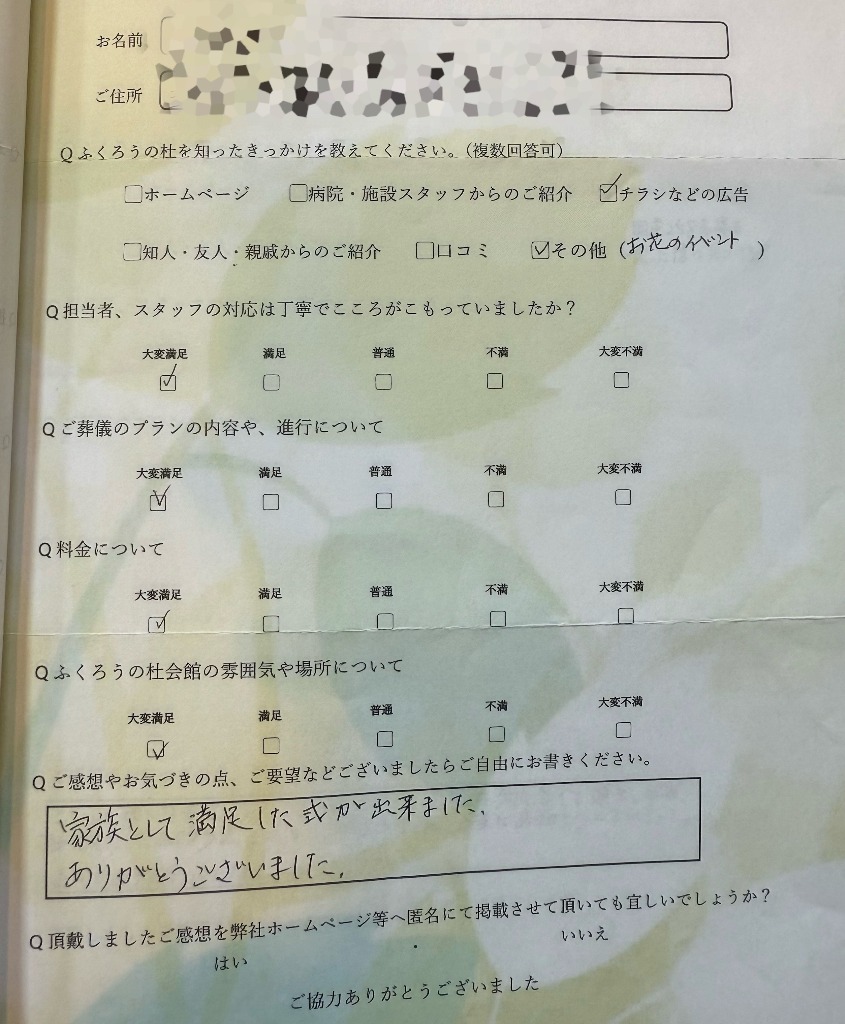 お名前
ご住所
Qふくろうの杜を知ったきっかけを教えてください。(複数回答可)
□ホームページ □病院・施設スタッフからのご紹介 ☑チラシなどの広告
□知人・友人・親戚からのご紹介 □口コミ ☑その他 (お花のイベント)
Q担当者、スタッフの対応は丁寧でこころがこもっていましたか?
大変満足 満足 普通 不満 大変不満
☑ □ □ □ □
Qご葬儀のプランの内容や、進行について
大変満足 満足 普通 不満 大変不満
☑ □ □ □ □
Q料金について
大変満足 満足 普通 不満 大変不満
☑ □ □ □ □
Qふくろうの杜会館の雰囲気や場所について
大変満足 満足 普通 不満 大変不満
☑ □ □ □ □
Qご感想やお気づきの点、ご要望などございましたらご自由にお書きください。
家族として満足した式が出来ました。
ありがとうございました。
Q頂戴しましたご感想を弊社ホームページ等へ匿名にて掲載させて頂いても宜しいでしょうか?
はい ・ いいえ
ご協力ありがとうございました